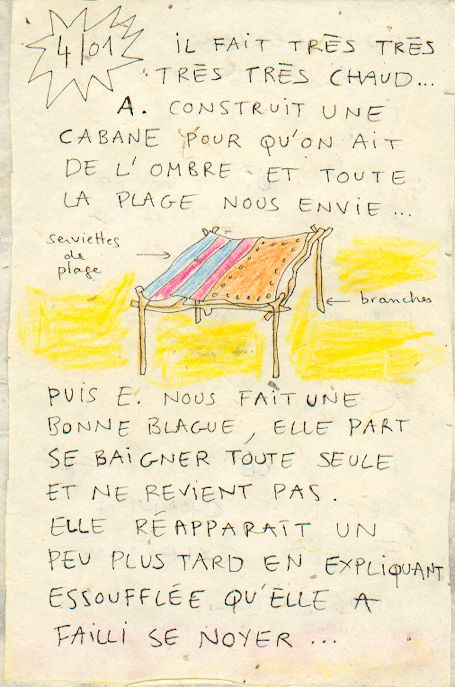 4/01
IL FAIT TRÈS TRÈS
TRÈS TRÈS CHAUD...
A. CONSTRUIT UNE
CABANE POUR QU'ON AIT
DE L'OMBRE ET TOUTE
LA PLAGE NOUS ENVIE...
serviettes
de
plage
branches
PUIS E. NOUS FAIT UNE
BONNE BLAGUE, ELLE PART
SE BAIGNER TOUTE SEULE
ET NE REVIENT PAS.
ELLE RÉAPPARAÎT UN
PEU PLUS TARD EN EXPLIQUANT
ESSOUFFLÉE QU'ELLE A
FAILLI SE NOYER...